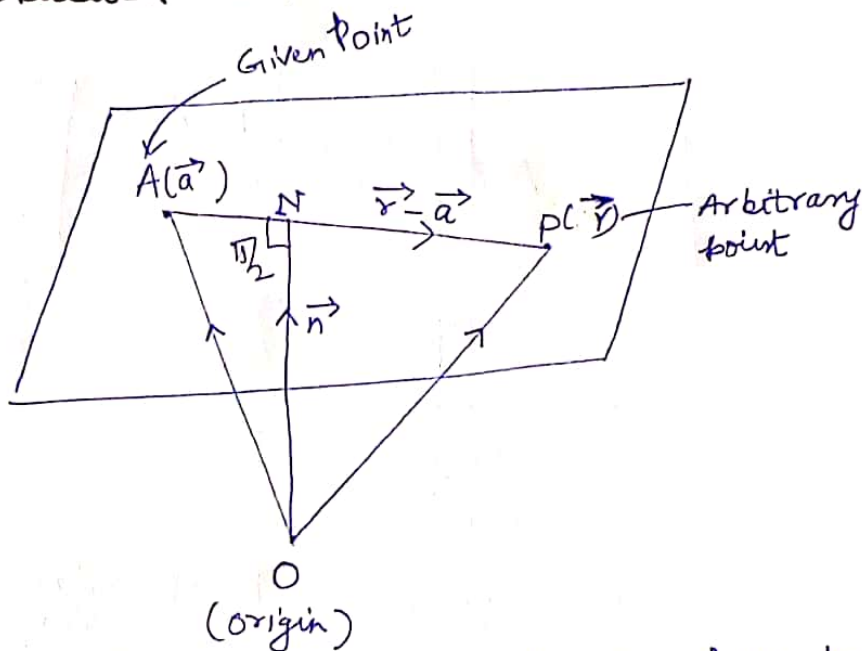 Given Point
A(a⃗)
N
r⃗ - a⃗
P(r⃗)
Arbitrary
point
π/2
n⃗
O
(origin)